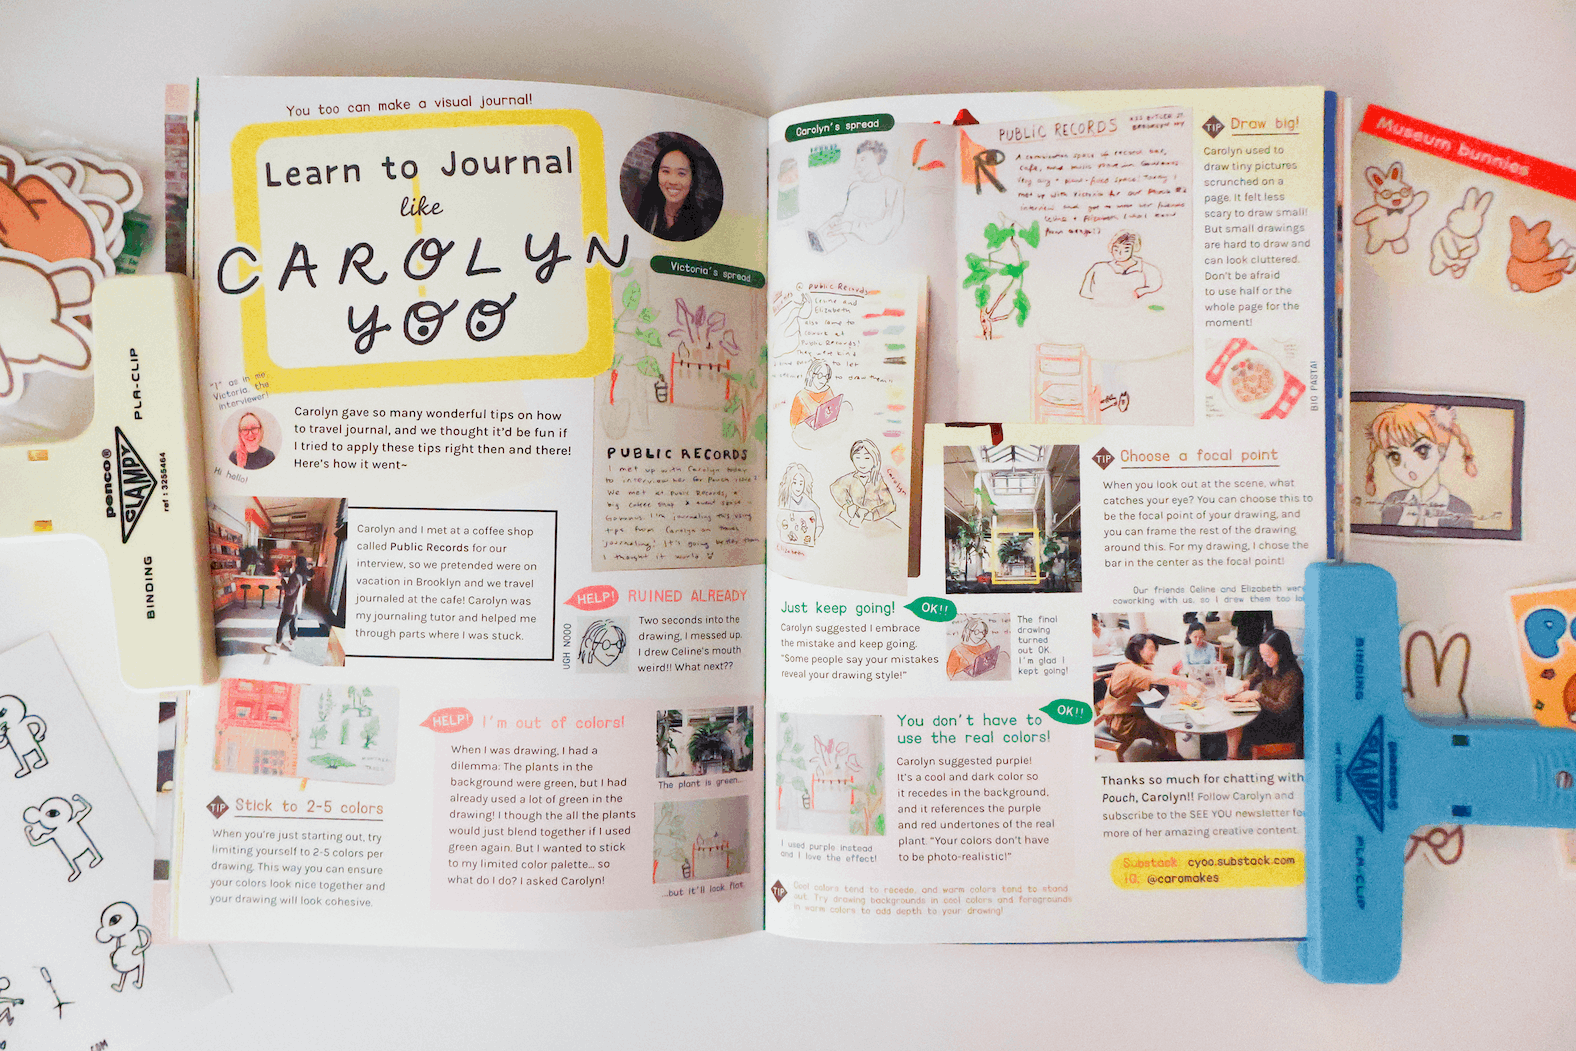 You too can make a visual journal!
Learn to Journal
like
CAROLYN
YOO
"I" as in me,
Victoria, the
interviewer!
Hi hello!
Carolyn gave so many wonderful tips on how
to travel journal, and we thought it'd be fun if
I tried to apply these tips right then and there!
Here's how it went~
Carolyn and I met at a coffee shop
called Public Records for our
interview, so we pretended were on
vacation in Brooklyn and we travel
journaled at the cafe! Carolyn was
my journaling tutor and helped me
through parts where I was stuck.
Victoria's spread
PUBLIC RECORDS
I met up with Carolyn today
to interview her for Pouch issue
We met at Public Records, a
HELP! RUINED ALREADY
UGH NOOO
Two seconds into the
drawing, I messed up.
I drew Celine's mouth
weird!! What next??
TIP Stick to 2-5 colors
When you're just starting out, try
limiting yourself to 2-5 colors per
drawing. This way you can ensure
your colors look nice together and
your drawing will look cohesive.
HELP! I'm out of colors!
When I was drawing, I had a
dilemma: The plants in the
background were green, but I had
already used a lot of green in the
drawing! I though the all the plants
would just blend together if I used
green again. But I wanted to stick
to my limited color palette... so
what do I do? I asked Carolyn!
The plant is green...
...but it'll look flat.
Carolyn's spread
PUBLIC RECORDS
BROOKLYN NY
@ Public Records
Celine and
Elizabeth
also came to
Public Records!
Carolyn
Elizabeth
TIP Draw big!
Carolyn used to
draw tiny pictures
scrunched on a
page. It felt less
scary to draw small!
But small drawings
are hard to draw and
can look cluttered.
Don't be afraid
to use half or the
whole page for the
moment!
BIG PASTA!
TIP Choose a focal point
When you look out at the scene, what
catches your eye? You can choose this to
be the focal point of your drawing, and
you can frame the rest of the drawing
around this. For my drawing, I chose the
bar in the center as the focal point!
Our friends Celine and Elizabeth were
coworking with us, so I drew them too
Just keep going! OK!!
Carolyn suggested I embrace
the mistake and keep going.
"Some people say your mistakes
reveal your drawing style!"
The final
drawing
turned
out OK.
I'm glad I
kept going!
You don't have to OK!!
use the real colors!
Carolyn suggested purple!
It's a cool and dark color so
it recedes in the background,
and it references the purple
and red undertones of the real
plant. "Your colors don't have
to be photo-realistic!"
I used purple instead
and I love the effect!
TIP Cool colors tend to recede, and warm colors tend to stand
out. Try drawing backgrounds in cool colors and foregrounds
in warm colors to add depth to your drawing!
Thanks so much for chatting with
Pouch, Carolyn!! Follow Carolyn and
subscribe to the SEE YOU newsletter for
more of her amazing creative content.
Substack: cyoo.substack.com
IG: @caromakes
penco®
CLAMPY
ref : 3255464
PLA-CLIP
BINDING
Museum bunnies
BINDING
CLAMPY
PLA-CLIP
.COM